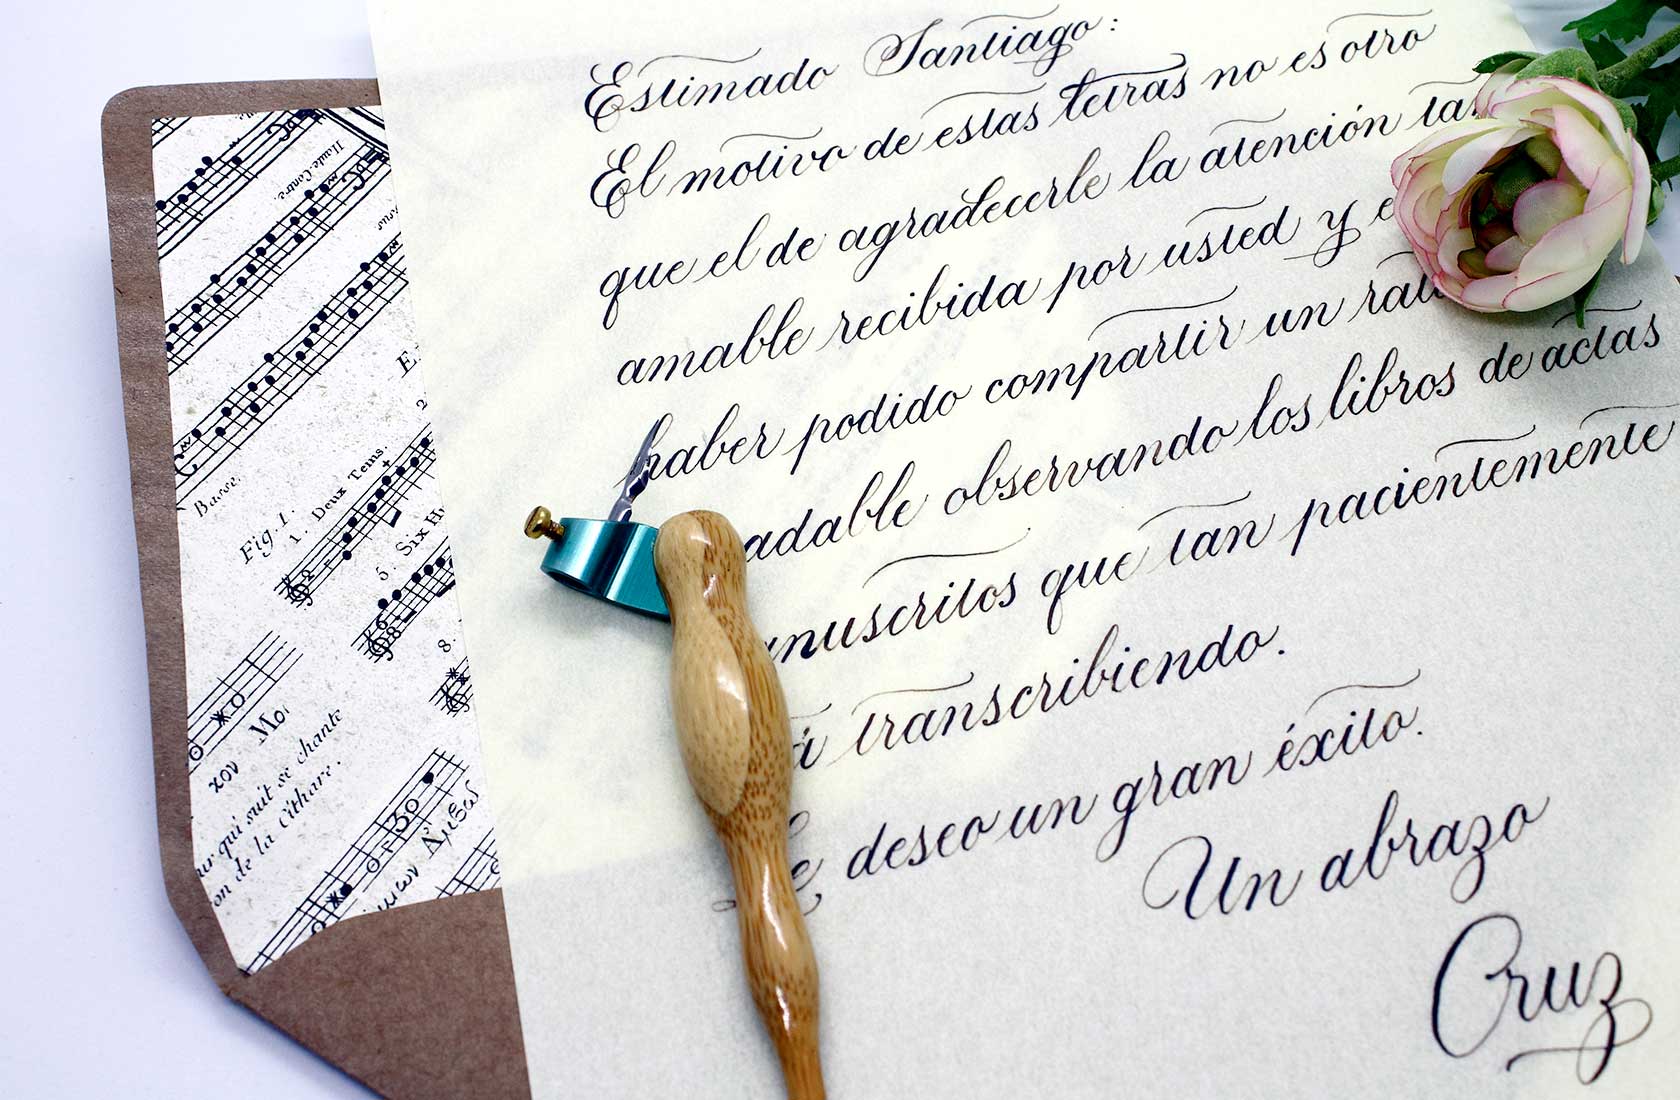 Estimado Santiago:
El motivo de estas letras no es otro
que el de agradecerle la atención
amable recibida por usted y
haber podido compartir un
observando los libros de actas
que tan pacientemente
transcribiendo.
deseo un gran éxito.
Un abrazo
Cruz
Haute-Contre.
Basse.
Fig. 1.
1. Deux Tems.
2
5. Six
8.
χον
qui suit se chante
de la Cithare.